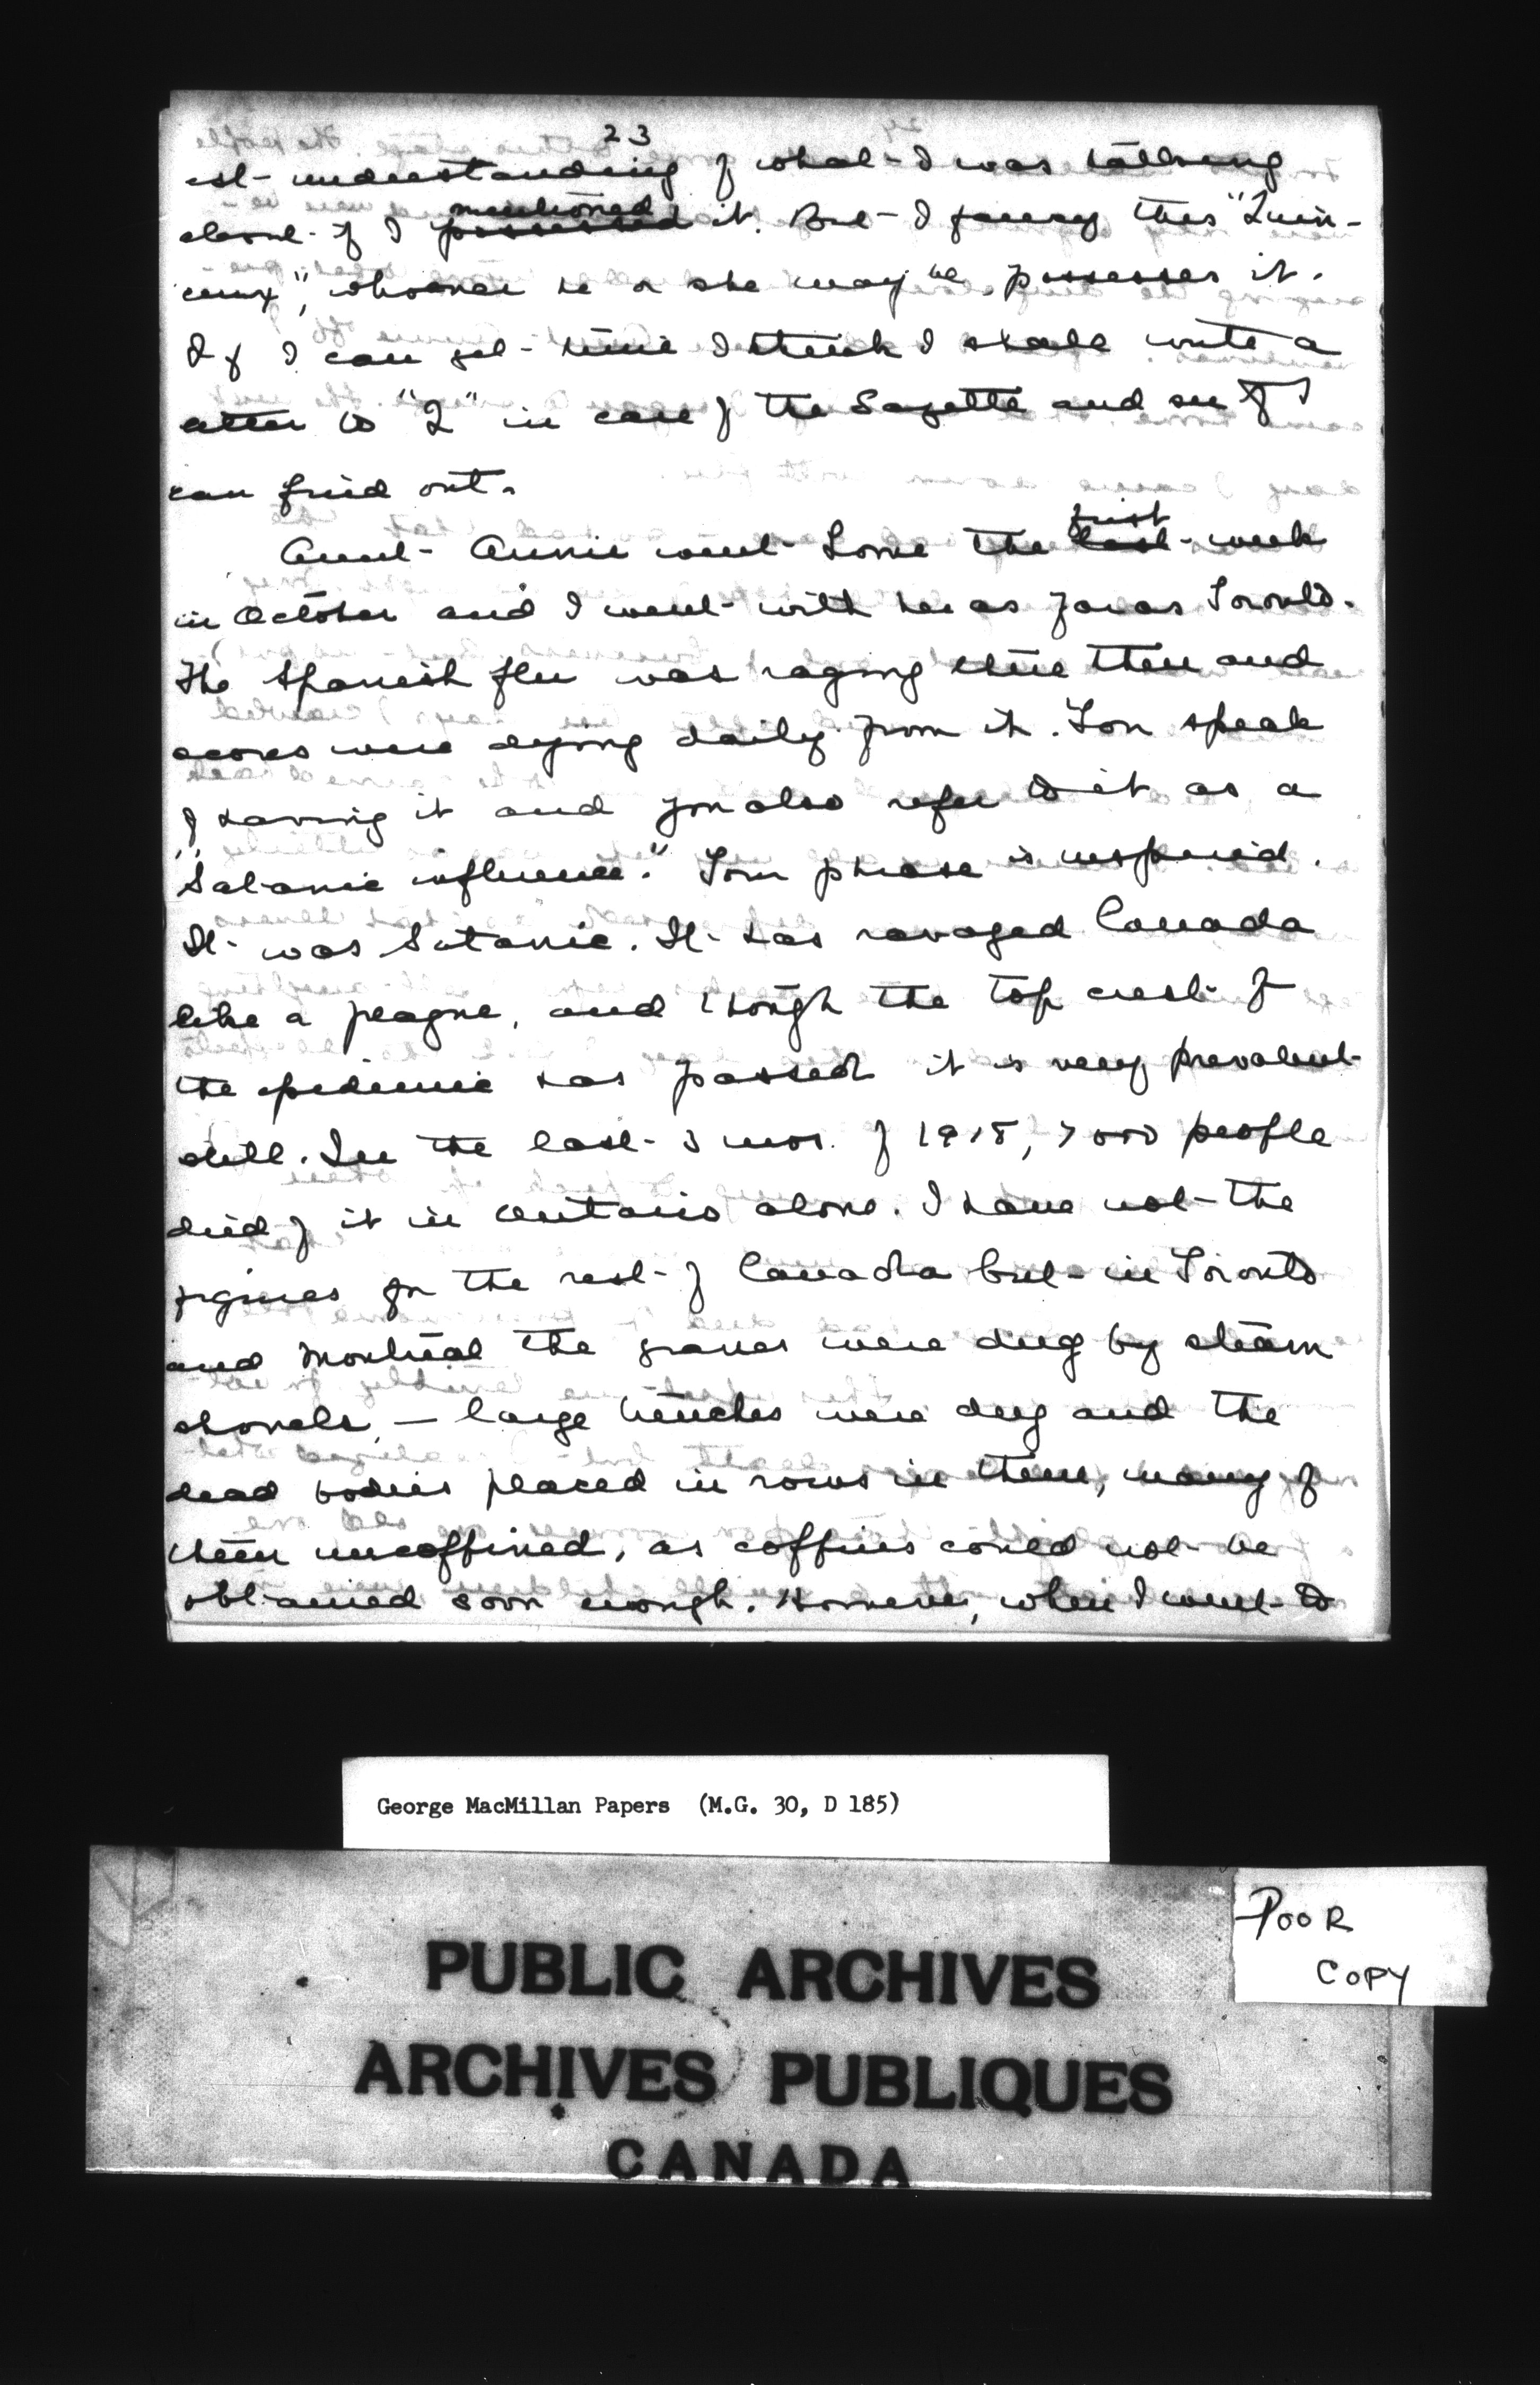 23
est understanding of what I was talking
about if I possessed mentioned it. But I fancy this "Quin-
cunx", whoever he or she may be, possesses it.
If I can get time I think I shall write a
letter to "Q" in care of the Gazette and see if I
can find out.
Aunt Annie went home the last first week
in October and I went with her as far as Toronto.
The Spanish flu was raging there then and
scores were dying daily from it. You speak
of having it and you also refer to it as a
"Satanic influence." Your phrase is inspired.
It was Satanic. It has ravaged Canada
like a plague, and though the top crest of
the epidemic has passed it is very prevalent
still. In the last 3 mos. of 1918, 7000 people
died of it in Ontario alone. I have not the
figures for the rest of Canada but in Toronto
and Montreal the graves were dug by steam
shovels, — large trenches were dug and the
dead bodies placed in rows in them, many of
them uncoffined, as coffins could not be
obtained soon enough. However, when I went to
George MacMillan Papers (M.G. 30, D 185)
POOR
COPY
PUBLIC ARCHIVES
ARCHIVES PUBLIQUES
CANADA